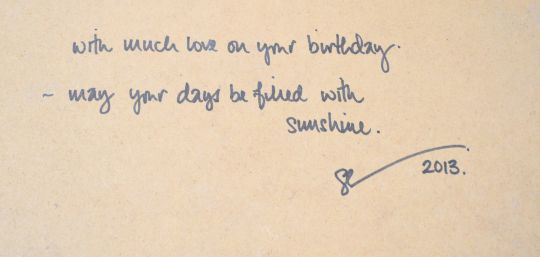 with much love on your birthday.
~ may your days be filled with
sunshine.
2013.